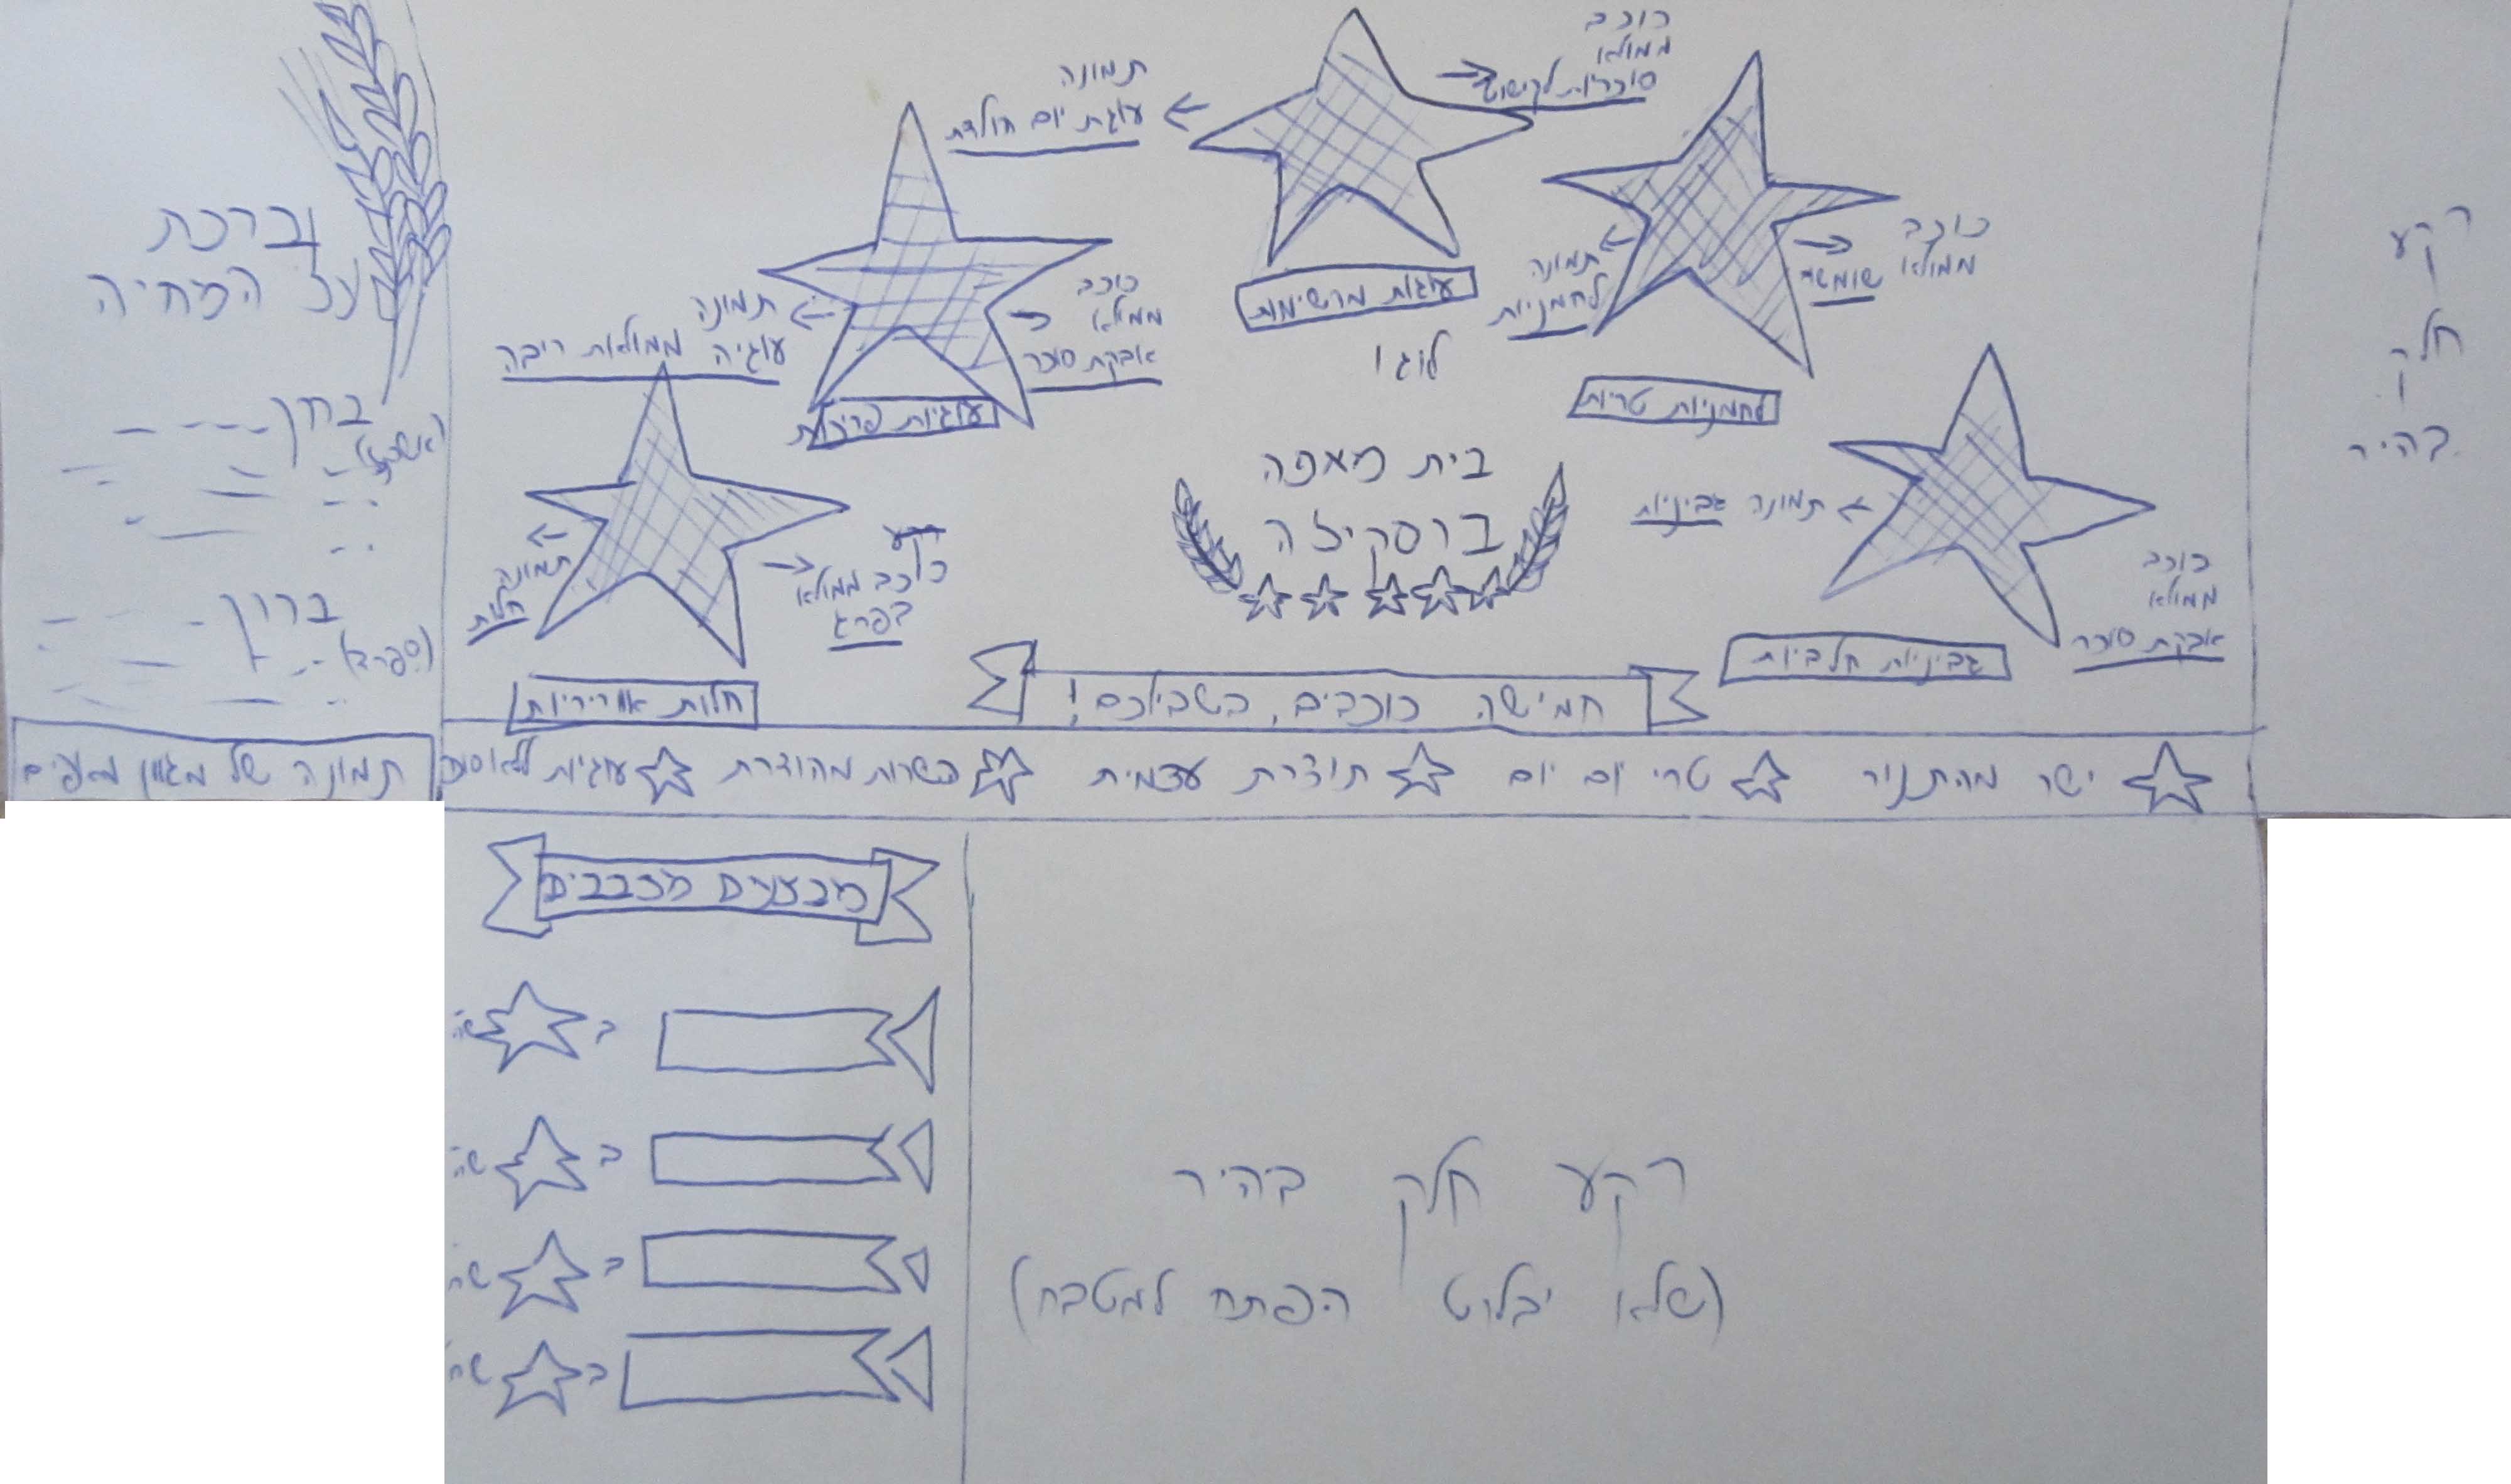 כוכב
ממולא
סוכריות לקישוט
תמונה
עוגת יום הולדת
עוגות מרשימות
כוכב
ממולא
שומשום
תמונה
לחמניות
לחמניות טריות
תמונה
עוגיה ממולאת ריבה
כוכב
ממולא
אבקת סוכר
עוגיות פריכות
לוגו
בית מאפה
ברסקיזה
תמונה גביניות
כוכב
ממולא
אבקת סוכר
גביניות חלביות
תמונה
חלות
כוכב ממולא
בפרג
חלות אווריריות
חמישה כוכבים, בשבילכם!
ישר מהתנור
טרי יום יום
תוצרת עצמית
כשרות מהודרת
עוגיות ללא סוכר
רקע
חלק
בהיר
וברכת
על המחיה
ברוך
(אשכנז)
ברוך
(ספרד)
תמונה של מגוון מאפים
מבצעים מככבים
ב
ב
ב
ב
רקע חלק בהיר
(שלא יבלוט הפתח למטבח)